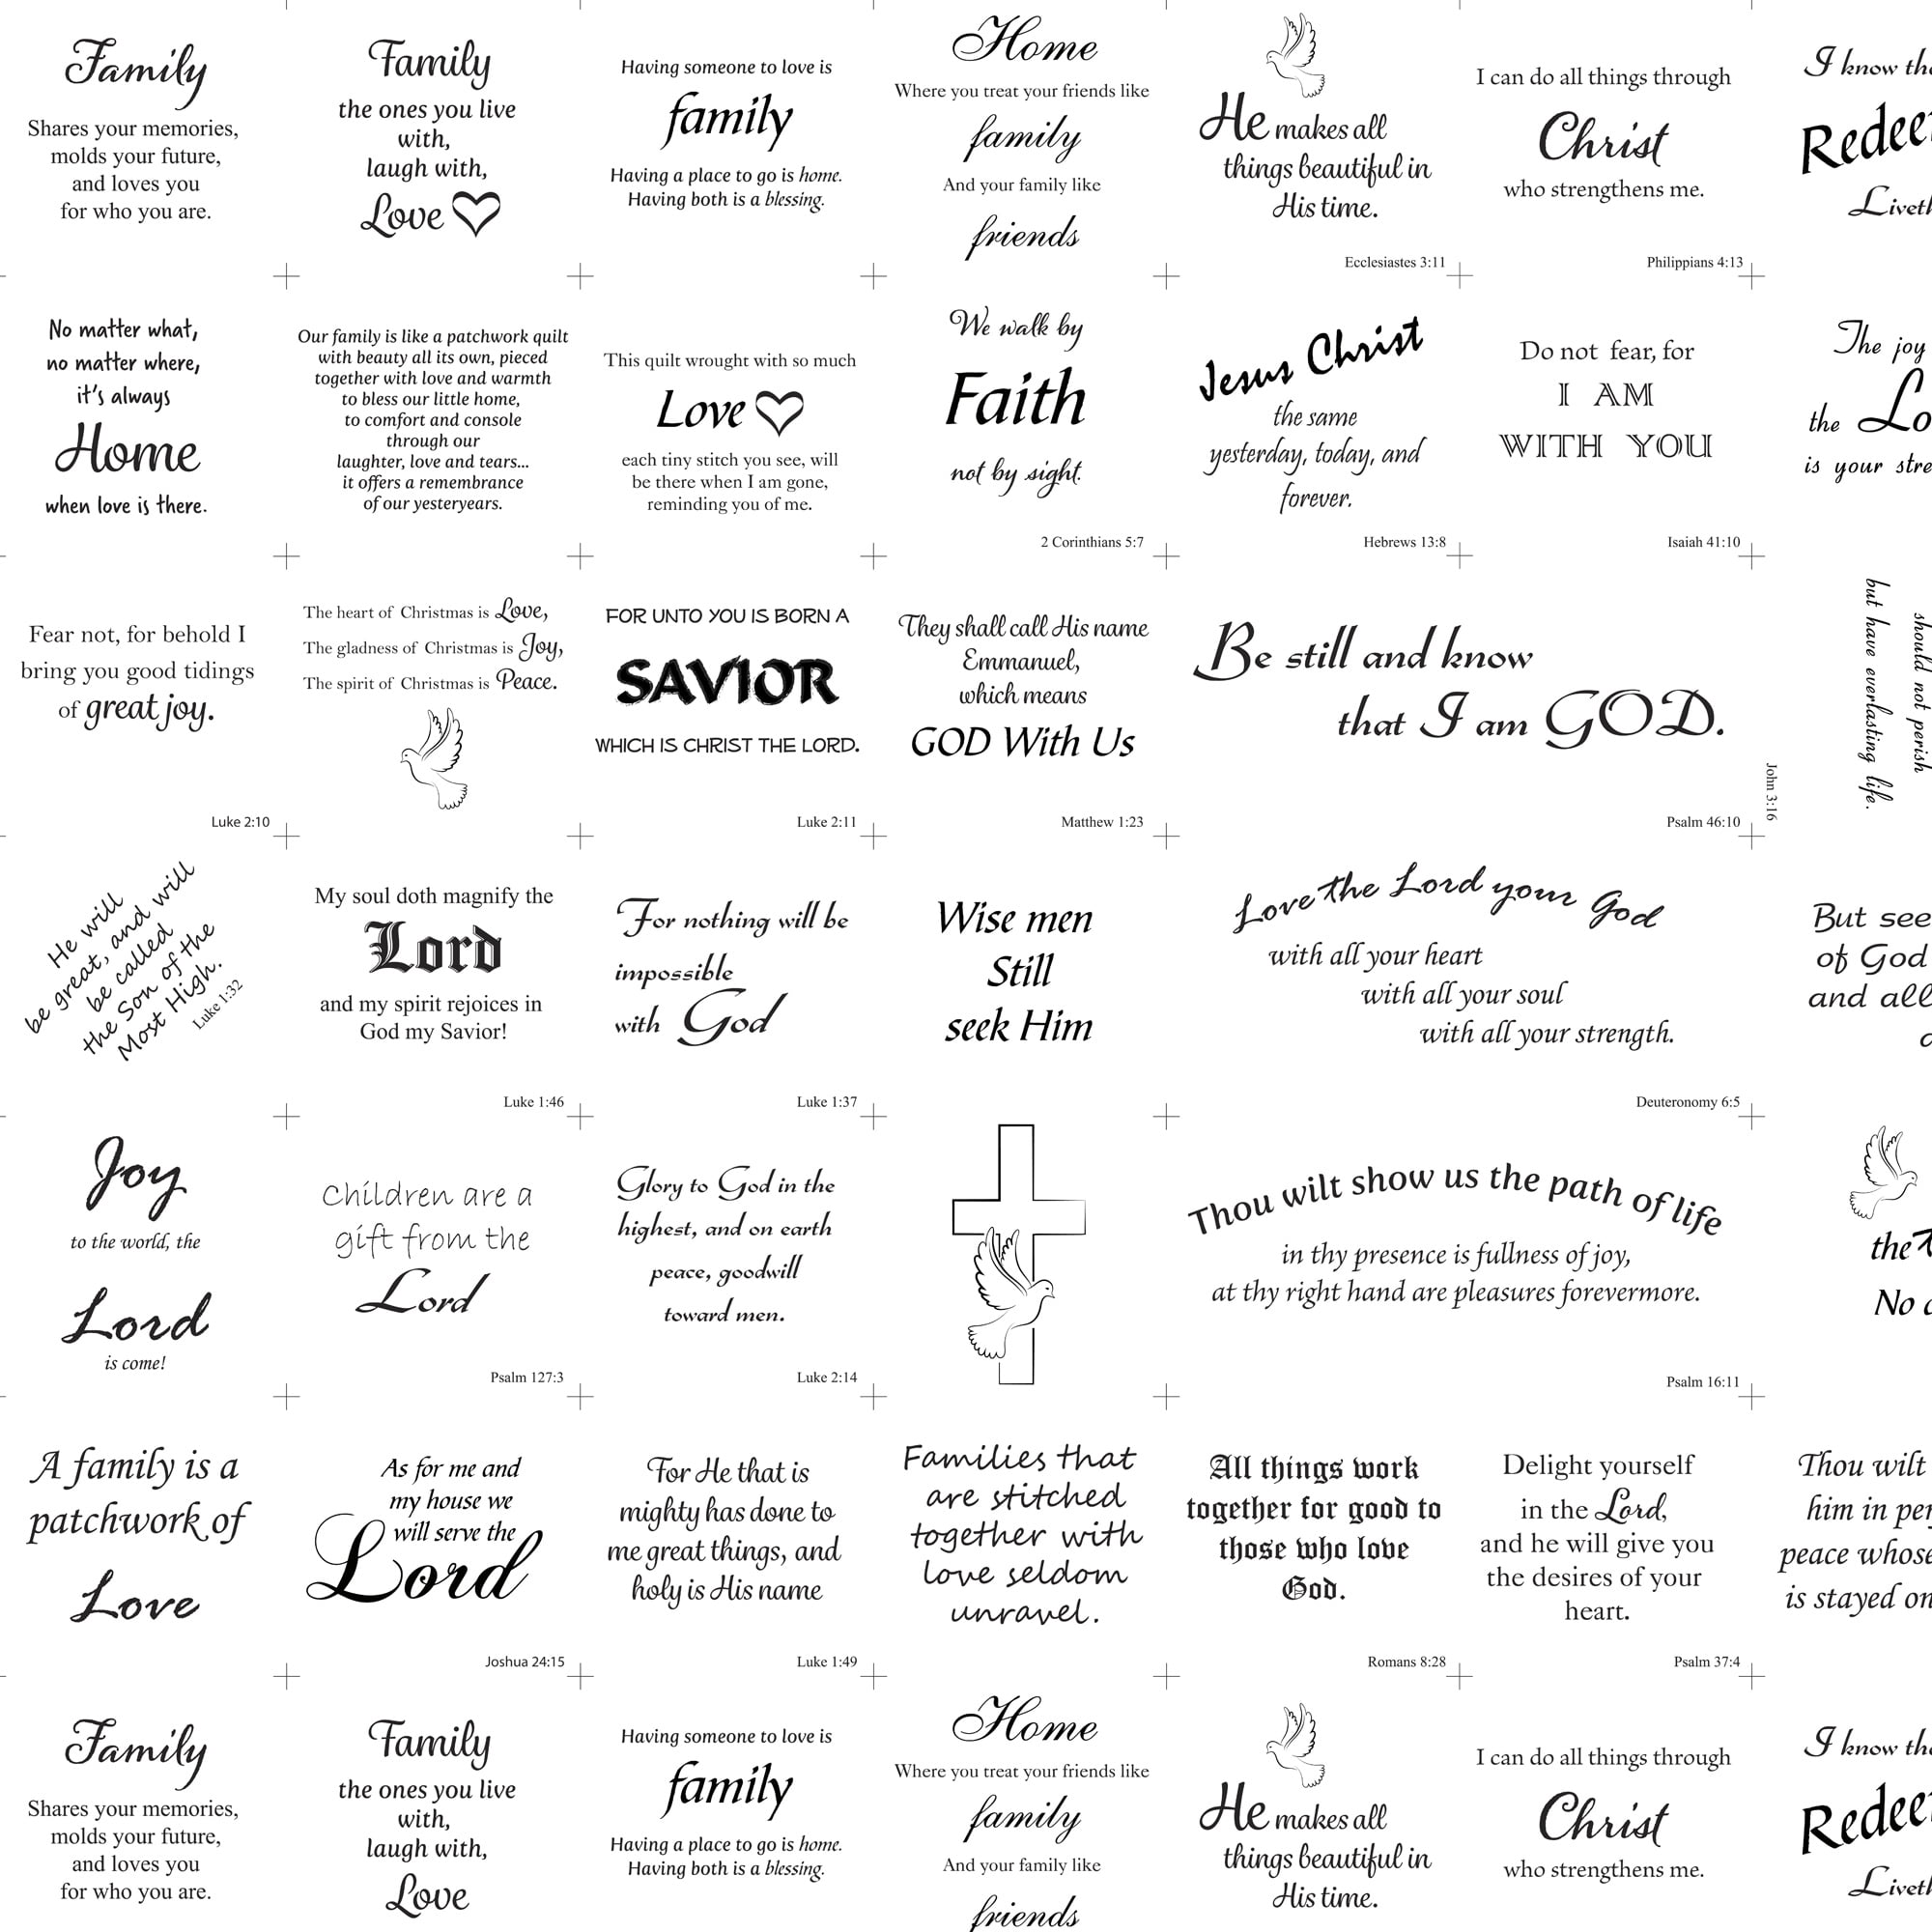 Family
Shares your memories,
molds your future,
and loves you
for who you are.
Family
the ones you live
with,
laugh with,
Love
Having someone to love is
family
Having a place to go is home.
Having both is a blessing.
Home
Where you treat your friends like
family
And your family like
friends
He makes all
things beautiful in
His time.
Ecclesiastes 3:11
I can do all things through
Christ
who strengthens me.
Philippians 4:13
I know
Liveth
No matter what,
no matter where,
it's always
Home
when love is there.
Our family is like a patchwork quilt
with beauty all its own, pieced
together with love and warmth
to bless our little home,
to comfort and console
through our
laughter, love and tears...
it offers a remembrance
of our yesteryears.
This quilt wrought with so much
Love
each tiny stitch you see, will
be there when I am gone,
reminding you of me.
We walk by
Faith
not by sight.
2 Corinthians 5:7
Jesus Christ
the same
yesterday, today, and
forever.
Hebrews 13:8
Do not fear, for
I AM
WITH YOU
Isaiah 41:10
The joy
the
is your
Fear not, for behold I
bring you good tidings
of great joy.
Luke 2:10
The heart of Christmas is Love,
The gladness of Christmas is Joy,
The spirit of Christmas is Peace.
FOR UNTO YOU IS BORN A
SAVIOR
WHICH IS CHRIST THE LORD.
Luke 2:11
They shall call His name
Emmanuel,
which means
GOD With Us
Matthew 1:23
Be still and know
that I am GOD.
Psalm 46:10
should not perish
but have everlasting life.
John 3:16
He will
be great, and will
be called
the Son of the
Most High.
Luke 1:32
My soul doth magnify the
Lord
and my spirit rejoices in
God my Savior!
Luke 1:46
For nothing will be
impossible
with God
Luke 1:37
Wise men
Still
seek Him
Love the Lord your God
with all your heart
with all your soul
with all your strength.
Deuteronomy 6:5
But
of God
and all
Joy
to the world, the
Lord
is come!
Children are a
gift from the
Lord
Psalm 127:3
Glory to God in the
highest, and on earth
peace, goodwill
toward men.
Luke 2:14
Thou wilt show us the path of life
in thy presence is fullness of joy,
at thy right hand are pleasures forevermore.
Psalm 16:11
the
No
A family is a
patchwork of
Love
As for me and
my house we
will serve the
Lord
Joshua 24:15
For He that is
mighty has done to
me great things, and
holy is His name
Luke 1:49
Families that
are stitched
together with
love seldom
unravel.
All things work
together for good to
those who love
God.
Romans 8:28
Delight yourself
in the Lord,
and he will give you
the desires of your
heart.
Psalm 37:4
Thou wilt
him in
peace whose
is stayed on
Family
Shares your memories,
molds your future,
and loves you
for who you are.
Family
the ones you live
with,
laugh with,
Love
Having someone to love is
family
Having a place to go is home.
Having both is a blessing.
Home
Where you treat your friends like
family
And your family like
friends
He makes all
things beautiful in
His time.
I can do all things through
Christ
who strengthens me.
I know